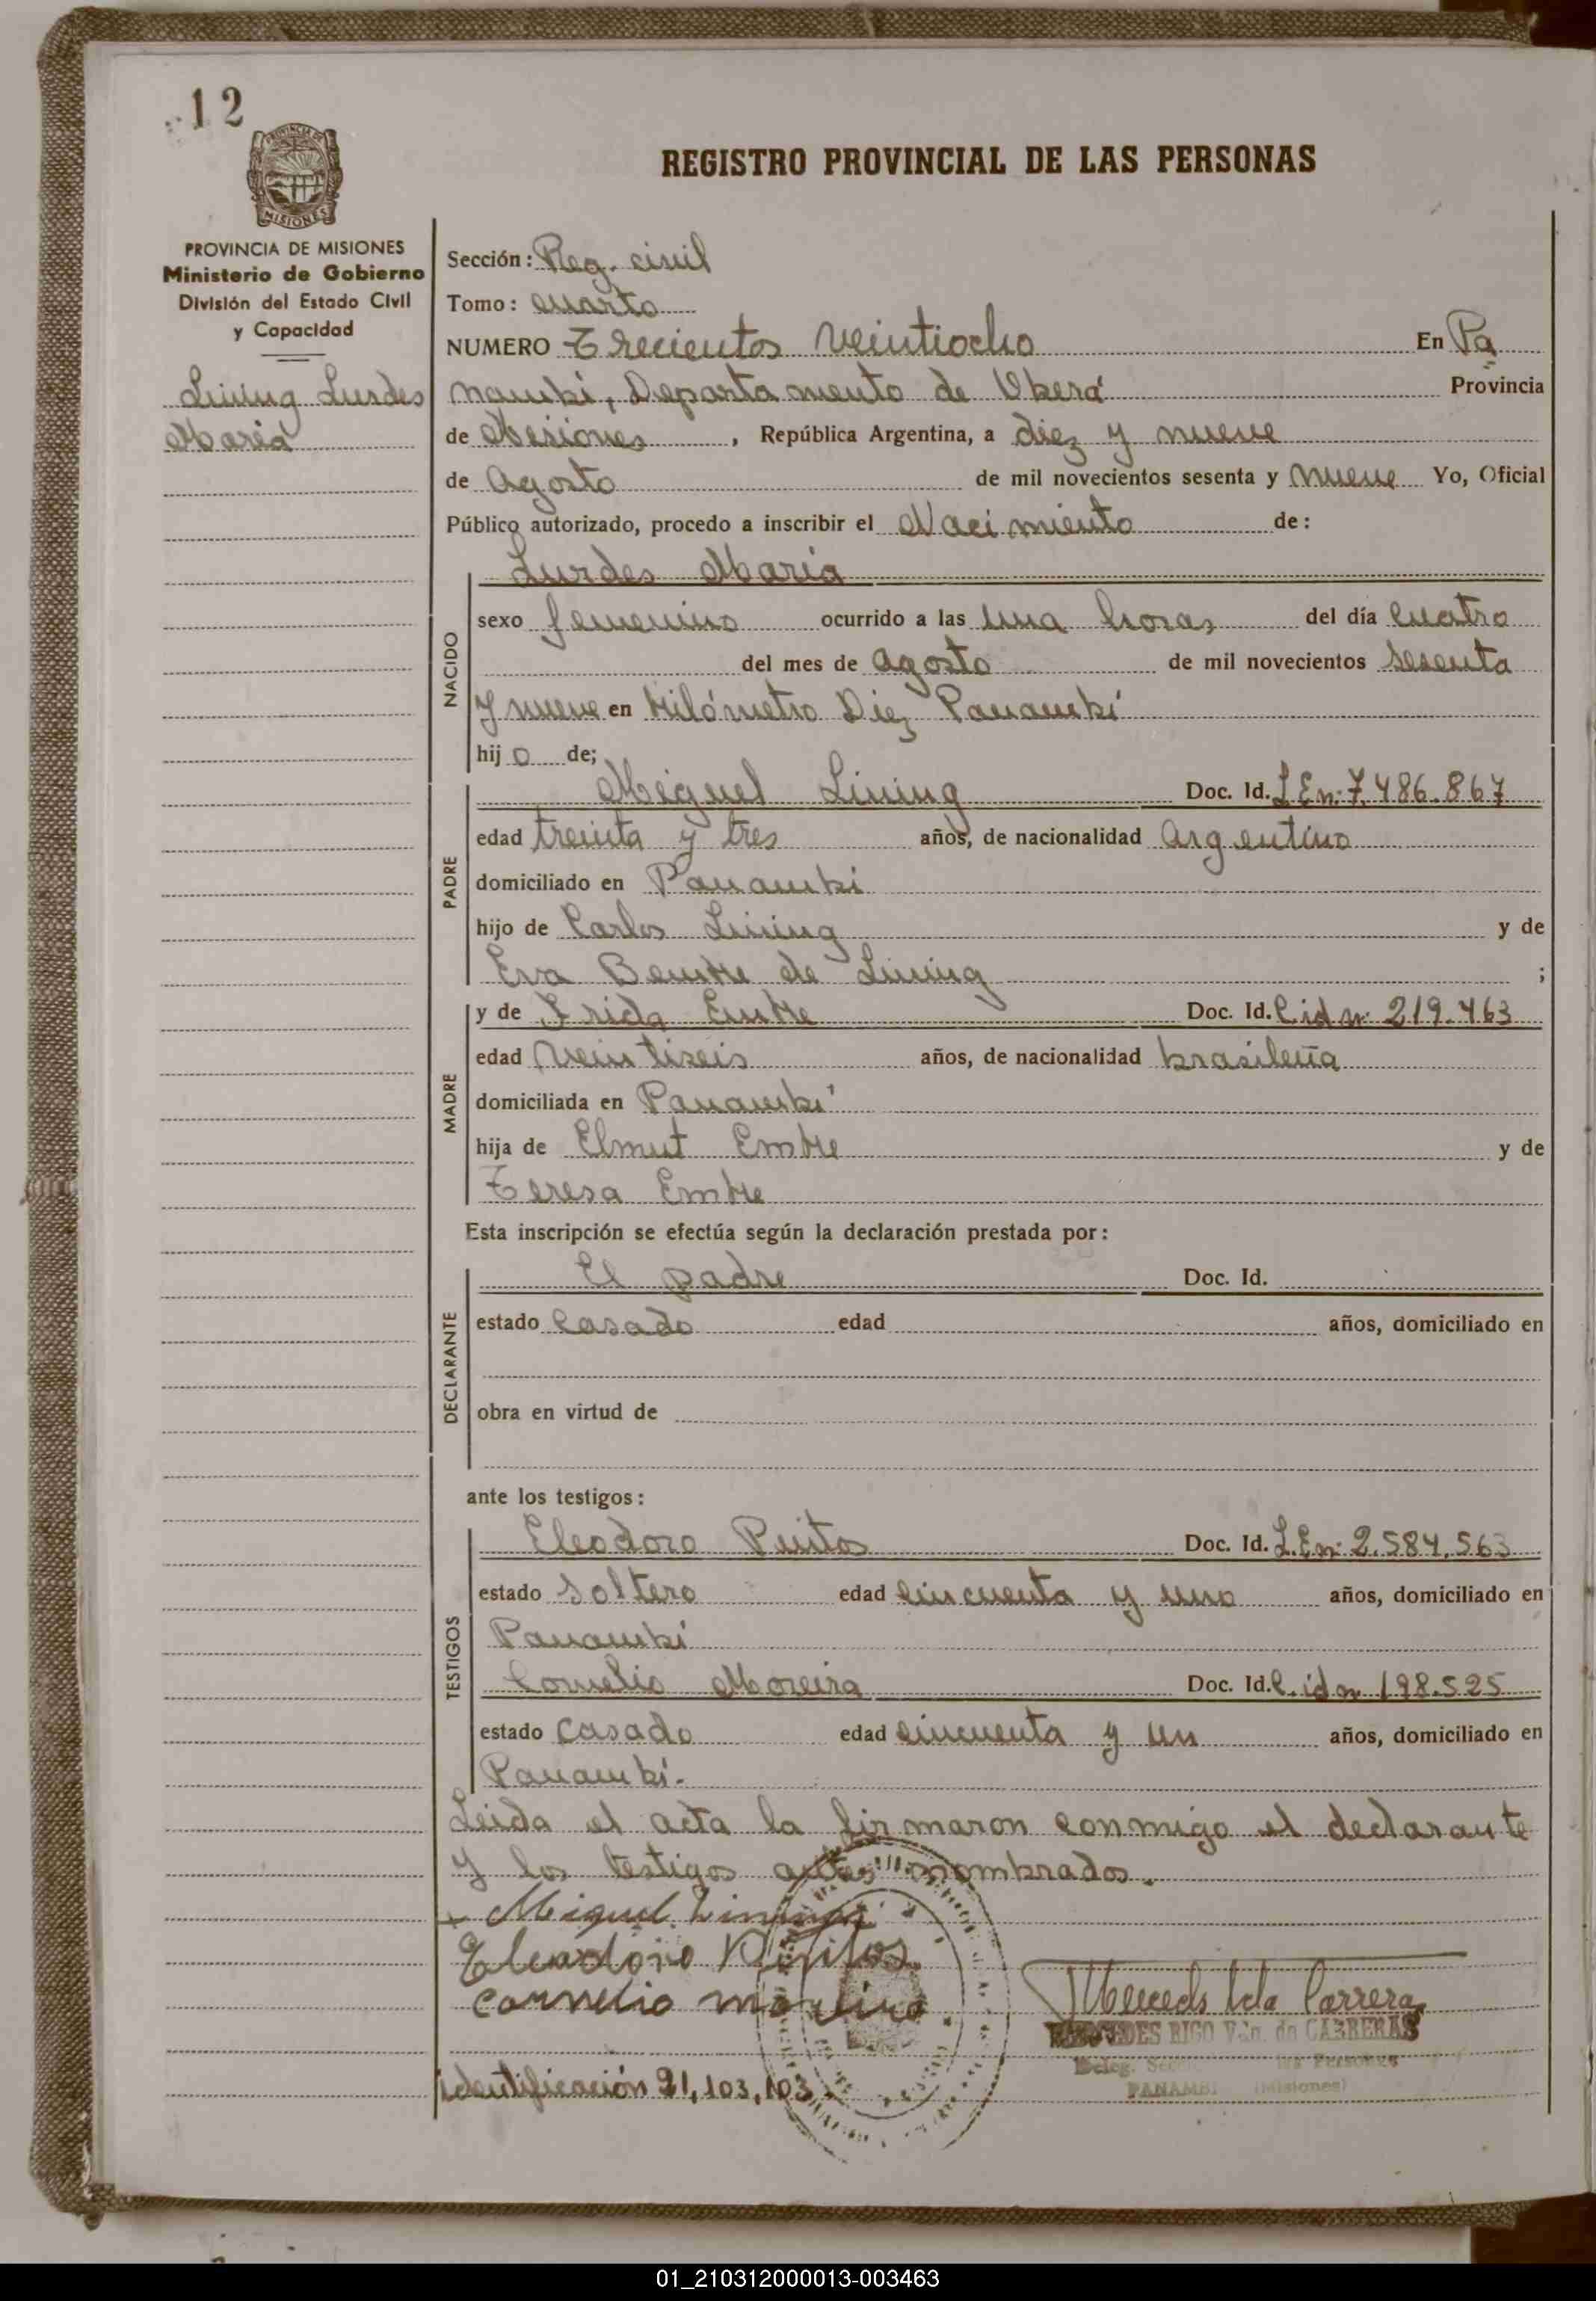 12
PROVINCIA DE MISIONES
REGISTRO PROVINCIAL DE LAS PERSONAS
PROVINCIA DE MISIONES
Ministerio de Gobierno
División del Estado Civil
y Capacidad
Lining Lurdes
María
Sección: Reg. civil
Tomo: cuarto
NUMERO Trecientos veintiocho En Pa
nambí, Departamento de Oberá Provincia
de Misiones, República Argentina, a diez y nueve
de Agosto de mil novecientos sesenta y nueve Yo, Oficial
Público autorizado, procedo a inscribir el Nacimiento de:
NACIDO
Lurdes María
sexo femenino ocurrido a las una horas del día cuatro
del mes de agosto de mil novecientos sesenta
y nueve en Kilómetro Diez Panambí
hij a de;
PADRE
Miguel Lining Doc. Id. L.E.n: 7.486.867
edad treinta y tres años, de nacionalidad argentino
domiciliado en Panambí
hijo de Carlos Lining y de
Eva de Lining ;
MADRE
y de Frida Emke Doc. Id. C.id n: 219.463
edad veintiseis años, de nacionalidad brasileña
domiciliada en Panambí
hija de Elmut Emke y de
Teresa Emke
Esta inscripción se efectúa según la declaración prestada por:
DECLARANTE
El padre Doc. Id.
estado casado edad años, domiciliado en
obra en virtud de
ante los testigos:
TESTIGOS
Eleodoro Doc. Id. L.E.n: 2.584.563
estado soltero edad cincuenta y uno años, domiciliado en
Panambí
Cornelio Moreira Doc. Id. C.id n 198.525
estado casado edad cincuenta y un años, domiciliado en
Panambí.
Leida el acta la firmaron conmigo el declarante
y los testigos antes nombrados.
Miguel Lining
Eleodoro
Cornelio Moreira
Mercedes Carrera
MERCEDES RICO Vda. de CARRERAS
Deleg. las Personas
PANAMBI (Misiones)
Identificación 21,103,103
01_210312000013-003463